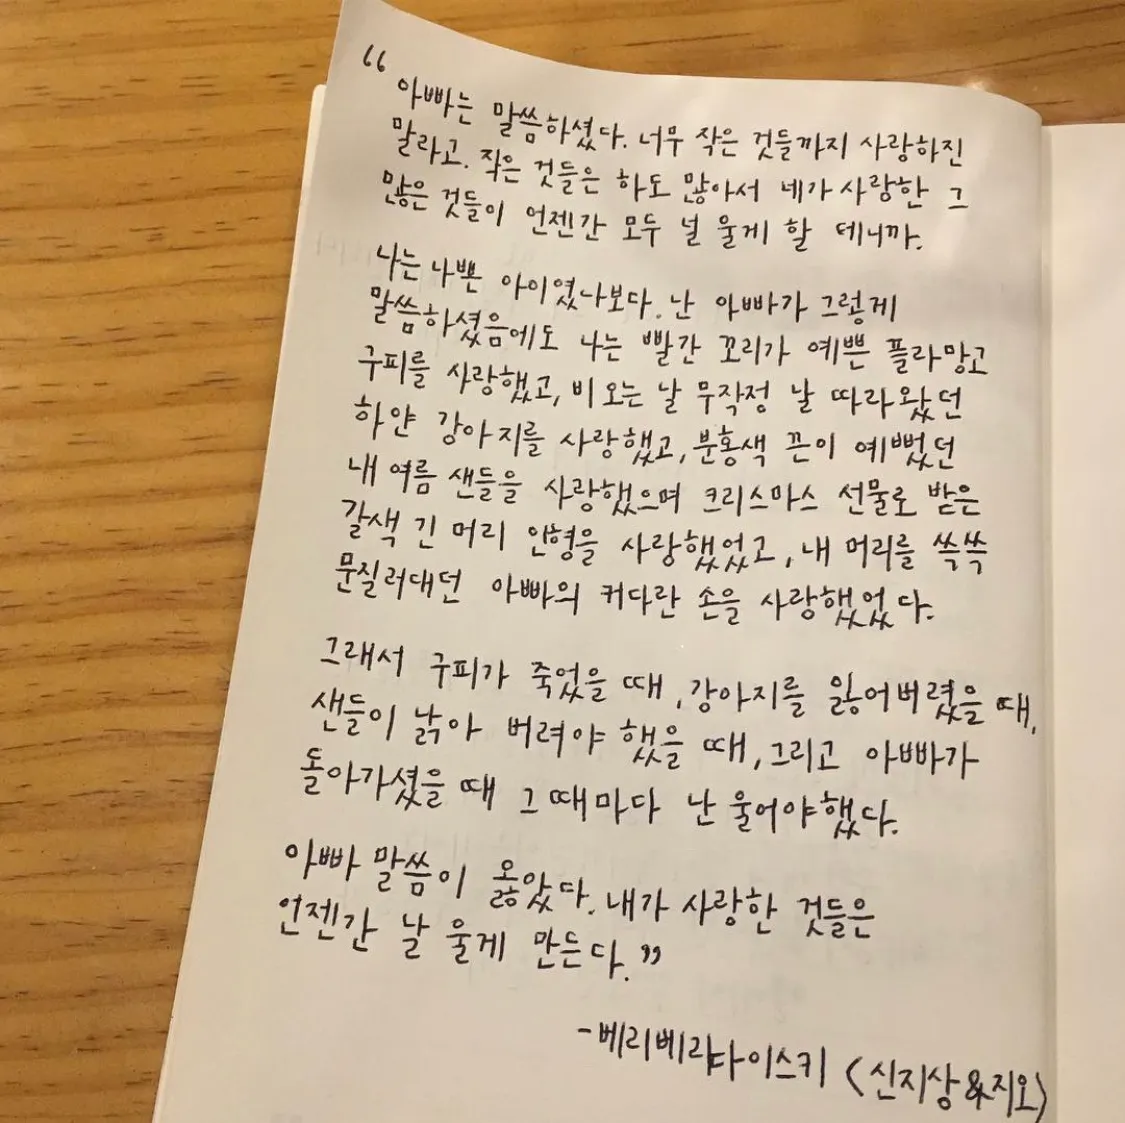 “ 아빠는 말씀하셨다. 너무 작은 것들까지 사랑하진
말라고. 작은 것들은 하도 많아서 네가 사랑한 그
많은 것들이 언젠간 모두 널 울게 할 테니까.
나는 나쁜 아이였나보다. 난 아빠가 그렇게
말씀하셨음에도 나는 빨간 꼬리가 예쁜 플라망고
구피를 사랑했고, 비 오는 날 무작정 날 따라왔던
하얀 강아지를 사랑했고, 분홍색 끈이 예뻤던
내 여름 샌들을 사랑했으며 크리스마스 선물로 받은
갈색 긴 머리 인형을 사랑했었고, 내 머리를 쓱쓱
문질러대던 아빠의 커다란 손을 사랑했었다.
그래서 구피가 죽었을 때, 강아지를 잃어버렸을 때,
샌들이 낡아 버려야 했을 때, 그리고 아빠가
돌아가셨을 때 그 때마다 난 울어야 했다.
아빠 말씀이 옳았다. 내가 사랑한 것들은
언젠간 날 울게 만든다.”
- 베리베리다이스키 <신지상&지오>